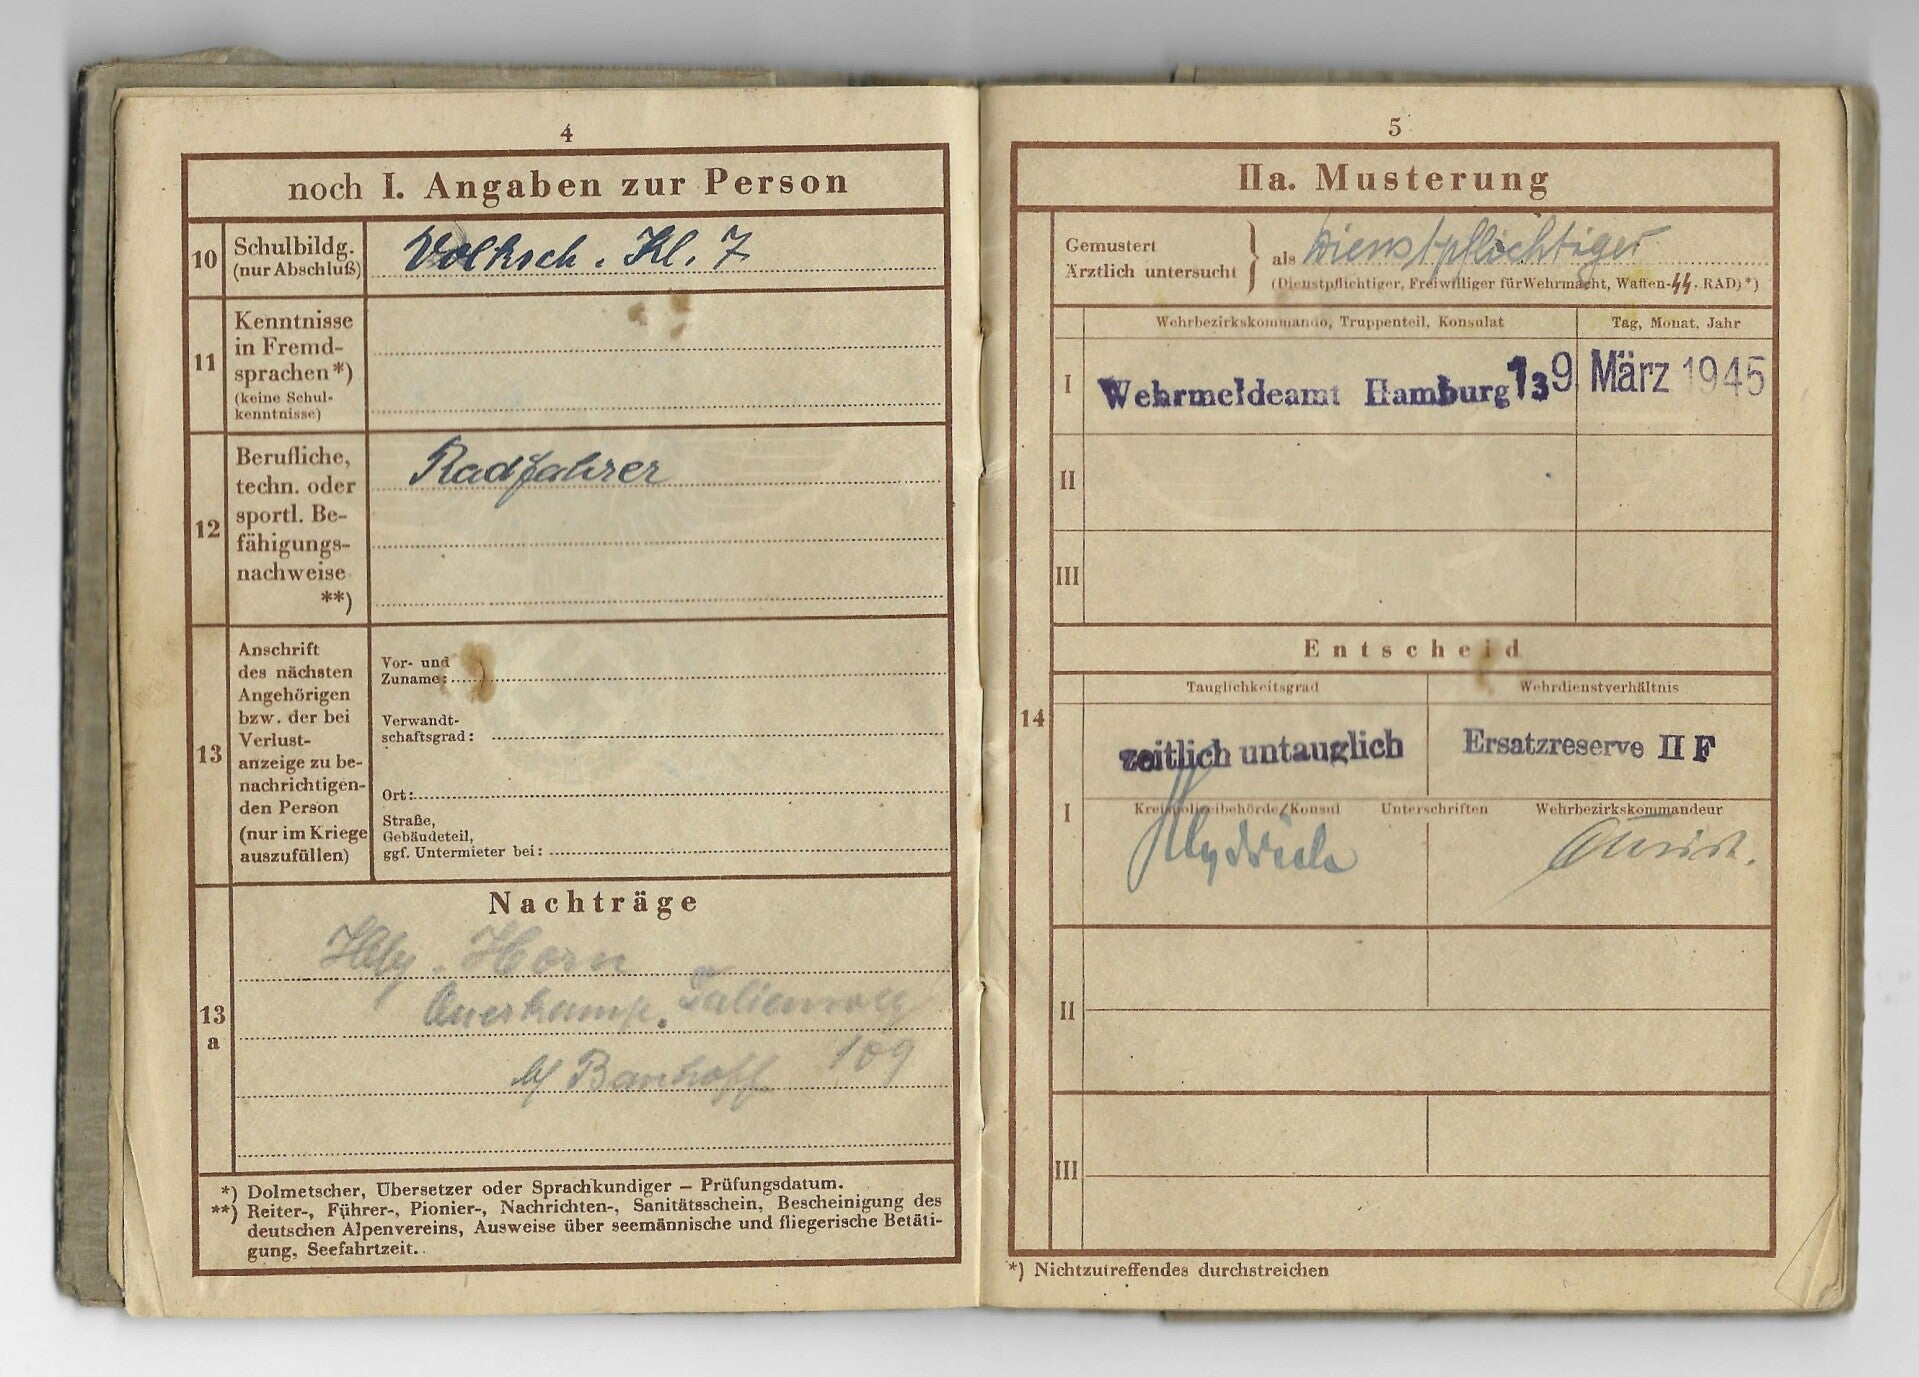 4
noch I. Angaben zur Person
10
Schulbildg.
(nur Abschluß)
Volksch. Kl. 7
11
Kenntnisse
in Fremd-
sprachen *)
(keine Schul-
kenntnisse)
12
Berufliche,
techn. oder
sportl. Be-
fähigungs-
nachweise
**)
Radfahrer
13
Anschrift
des nächsten
Angehörigen
bzw. der bei
Verlust-
anzeige zu be-
nachrichtigen-
den Person
(nur im Kriege
auszufüllen)
Vor- und
Zuname:
Verwandt-
schaftsgrad:
Ort:
Straße,
Gebäudeteil,
ggf. Untermieter bei:
Nachträge
13
a
Horn
109
*) Dolmetscher, Übersetzer oder Sprachkundiger – Prüfungsdatum.
**) Reiter-, Führer-, Pionier-, Nachrichten-, Sanitätsschein, Bescheinigung des
deutschen Alpenvereins, Ausweise über seemännische und fliegerische Betäti-
gung, Seefahrtzeit.
5
IIa. Musterung
Gemustert
Ärztlich untersucht
als Dienstpflichtiger
(Dienstpflichtiger, Freiwilliger für Wehrmacht, Waffen-SS, RAD) *)
Wehrbezirkskommando, Truppenteil, Konsulat
Tag, Monat, Jahr
I
Wehrmeldeamt Hamburg 13
9. März 1945
II
III
Entscheid
14
Tauglichkeitsgrad
Wehrdienstverhältnis
zeitlich untauglich
Ersatzreserve II F
I
Kreispolizeibehörde/Konsul Unterschriften Wehrbezirkskommandeur
II
III
*) Nichtzutreffendes durchstreichen